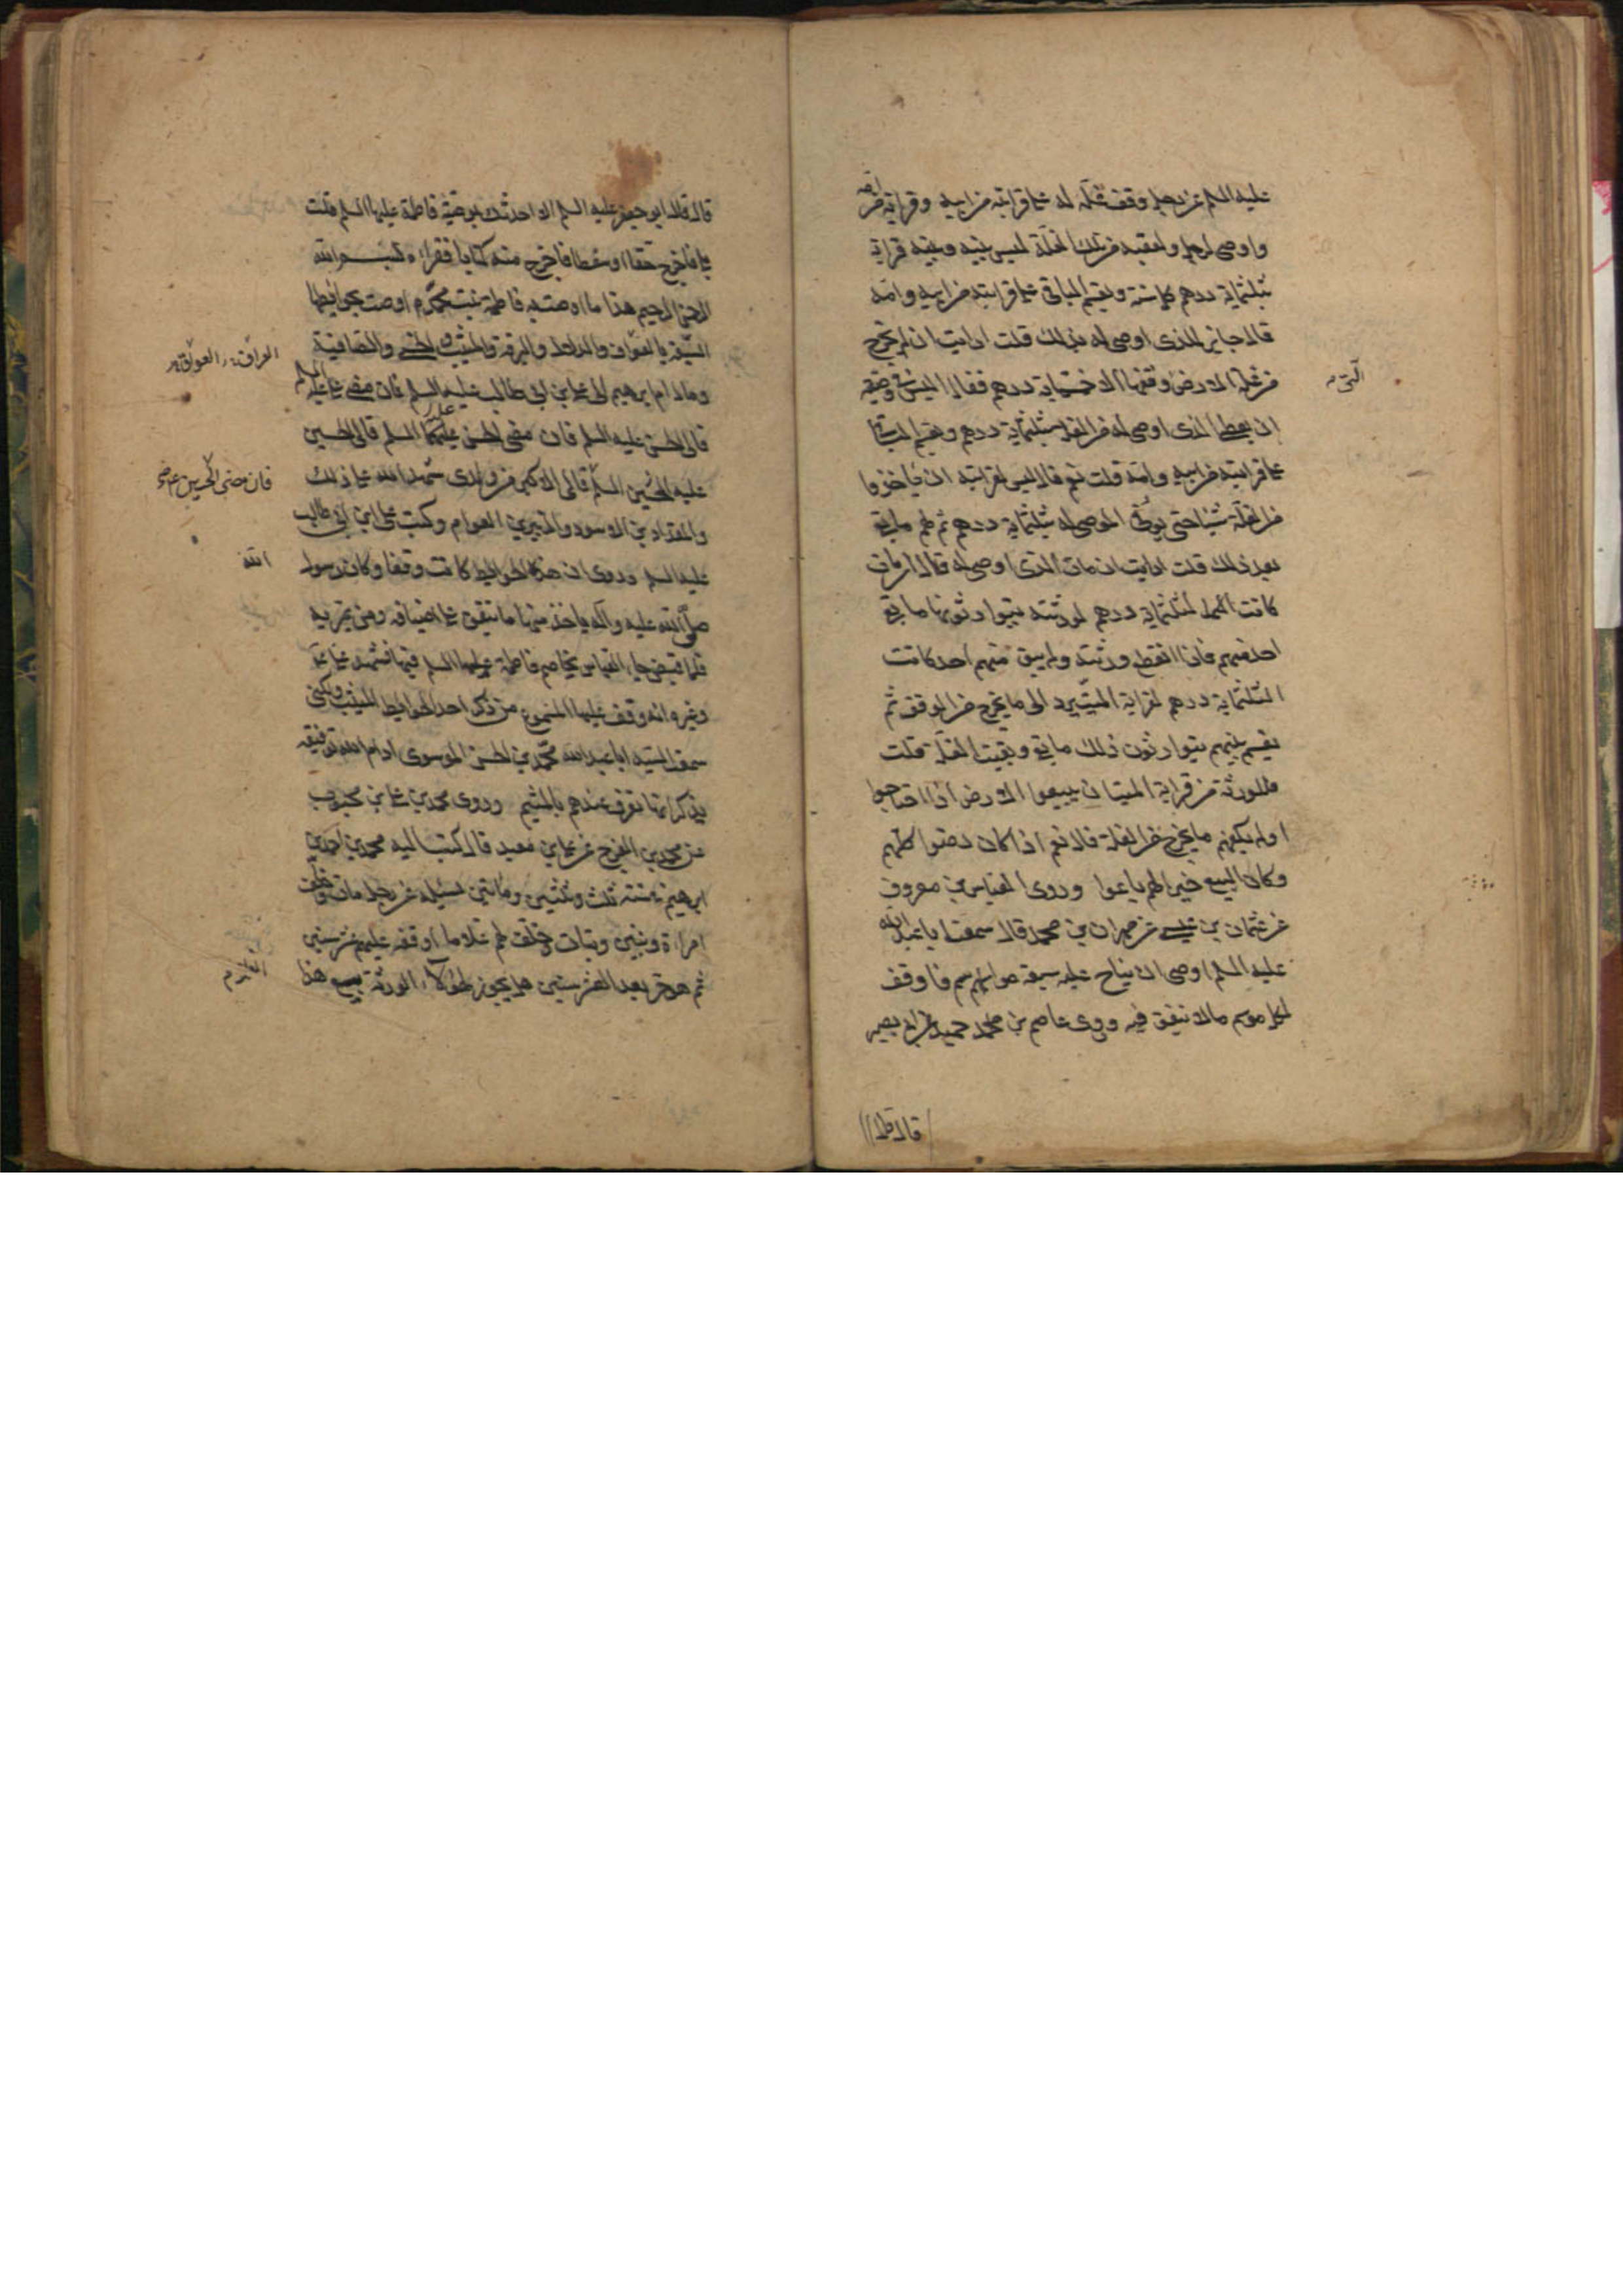 عليه السلم عن رجل وقف غلة له على قرابته من ابيه وقرابته من امه
واوصى لرجل ولعقبه من تلك الغلة ليس بينه وبينه قرابة
بثلثماية درهم كل سنة ويقسم الباقى على قرابته من ابيه وامه
قال جايز للذى اوصى له بذلك قلت ارايت ان لم يخرج
من غلة الارض وقفها الا خمسماية درهم فقال اليس فى وصيته
ان يعطى الذى اوصى له من الغلة بثلثماية درهم ويقسم الباقى
على قرابته من ابيه وامه قلت نعم قال ليس لقرابته ان ياخذوا
من الغلة شيئا حتى يوفى الموصى له بثلثماية درهم ثم لهم ما بقى
بعد ذلك قلت ارايت ان مات الذى اوصى له قال ان مات
كانت الثلثماية درهم لورثته يتوارثونها ما بقى
احد منهم فاذا انقطع ورثته ولم يبق منهم احد كانت
الثلثماية درهم لقرابة الميت يرد الى ما يخرج من الوقف ثم
يقسم بينهم يتوارثون ذلك ما بقى وبقيت الغلة قلت
فللورثة من قرابة الميت ان يبيعوا الارض اذا احتاجوا
او لم يكفهم ما يخرج من الغلة قال نعم اذا كان رضوا كلهم
وكان البيع خيرا لهم باعوا وروى العباس بن معروف
عن عثمان بن عيسى عن مهران بن محمد قال سمعت ابا عبد الله
عليه السلم اوصى ان يناح عليه سبعة مواسم فاوقف
لكل موسم مالا ينفق فيه وروى عاصم بن حميد عن ابى بصير
التى
قال قال
قال قال ابو جعفر عليه السلم الا احدثك بوصية فاطمة عليها السلم قلت
بلى فاخرج حقا او سفطا فاخرج منه كتابا فقراه بسم الله
الرحمن الرحيم هذا ما اوصت به فاطمة بنت محمد م اوصت بحوايطها
السبعة بالعواف والدلال والبرقة والمبيت والحسنى والصافية
ومال ام ابرهيم الى على بن ابى طالب عليه السلم فان مضى على عليه السلم
فالى الحسن عليه السلم فان مضى الحسن عليه السلم فالى الحسين
عليه السلم فالى الاكبر من ولدى شهد الله على ذلك
والمقداد بن الاسود والزبير بن العوام وكتب على ابن ابى طالب
عليه السلم وروى ان هذه الحوايط كانت وقفا وكان رسول
صلى الله عليه وآله ياخذ منها ما ينفق على اضيافه ومن يمر به
فلما قبض جاء العباس يخاصم فاطمة عليها السلم فيها فشهد على ع
وغيره انه وقف عليها المسموع من ذكر احد الحوايط الميثب ولكنى
سمعت السيد ابا عبد الله محمد بن الحسن الموسوى ادام الله توفيقه
يذكر انها تعرف عندهم بالميثم وروى محمد بن على بن محبوب
عن محمد بن الفرج عن على بن معبد قال كتب اليه محمد بن احمد بن
ابرهيم سنة ثلث وثلثين ومائتين يسئله عن رجل مات وخلف
امراة وبنين وبنات وخلف لهم غلاما اوقفه عليهم عشر سنين
ثم هو حر بعد العشر سنين هل يجوز لهؤلاء الورثة بيع هذا
العواف
فان مضى الحسين ع
الله
الغلام